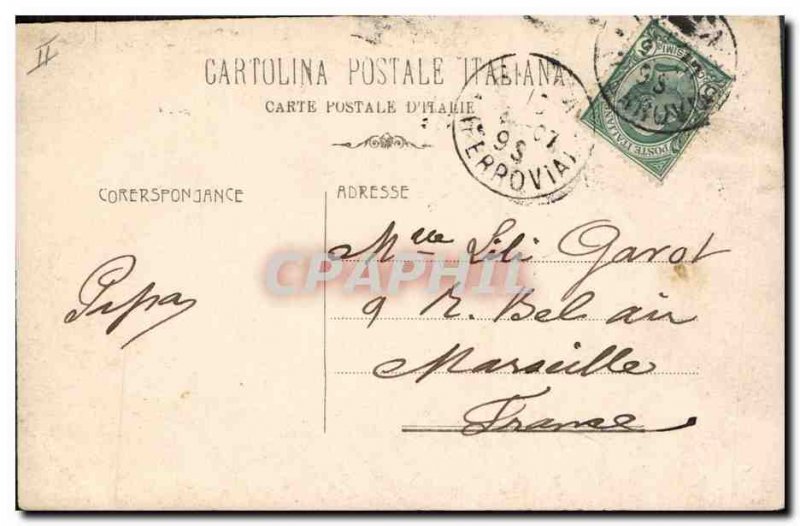 II
CARTOLINA POSTALE ITALIANA
CARTE POSTALE D'ITALIE
9S
(FERROVIA)
9S
POSTE ITALIANE
CORERSPONJANCE
ADRESSE
CPAPHIL
Papa
Mlle Lili Garot
9 R. Bel air
Marseille
France